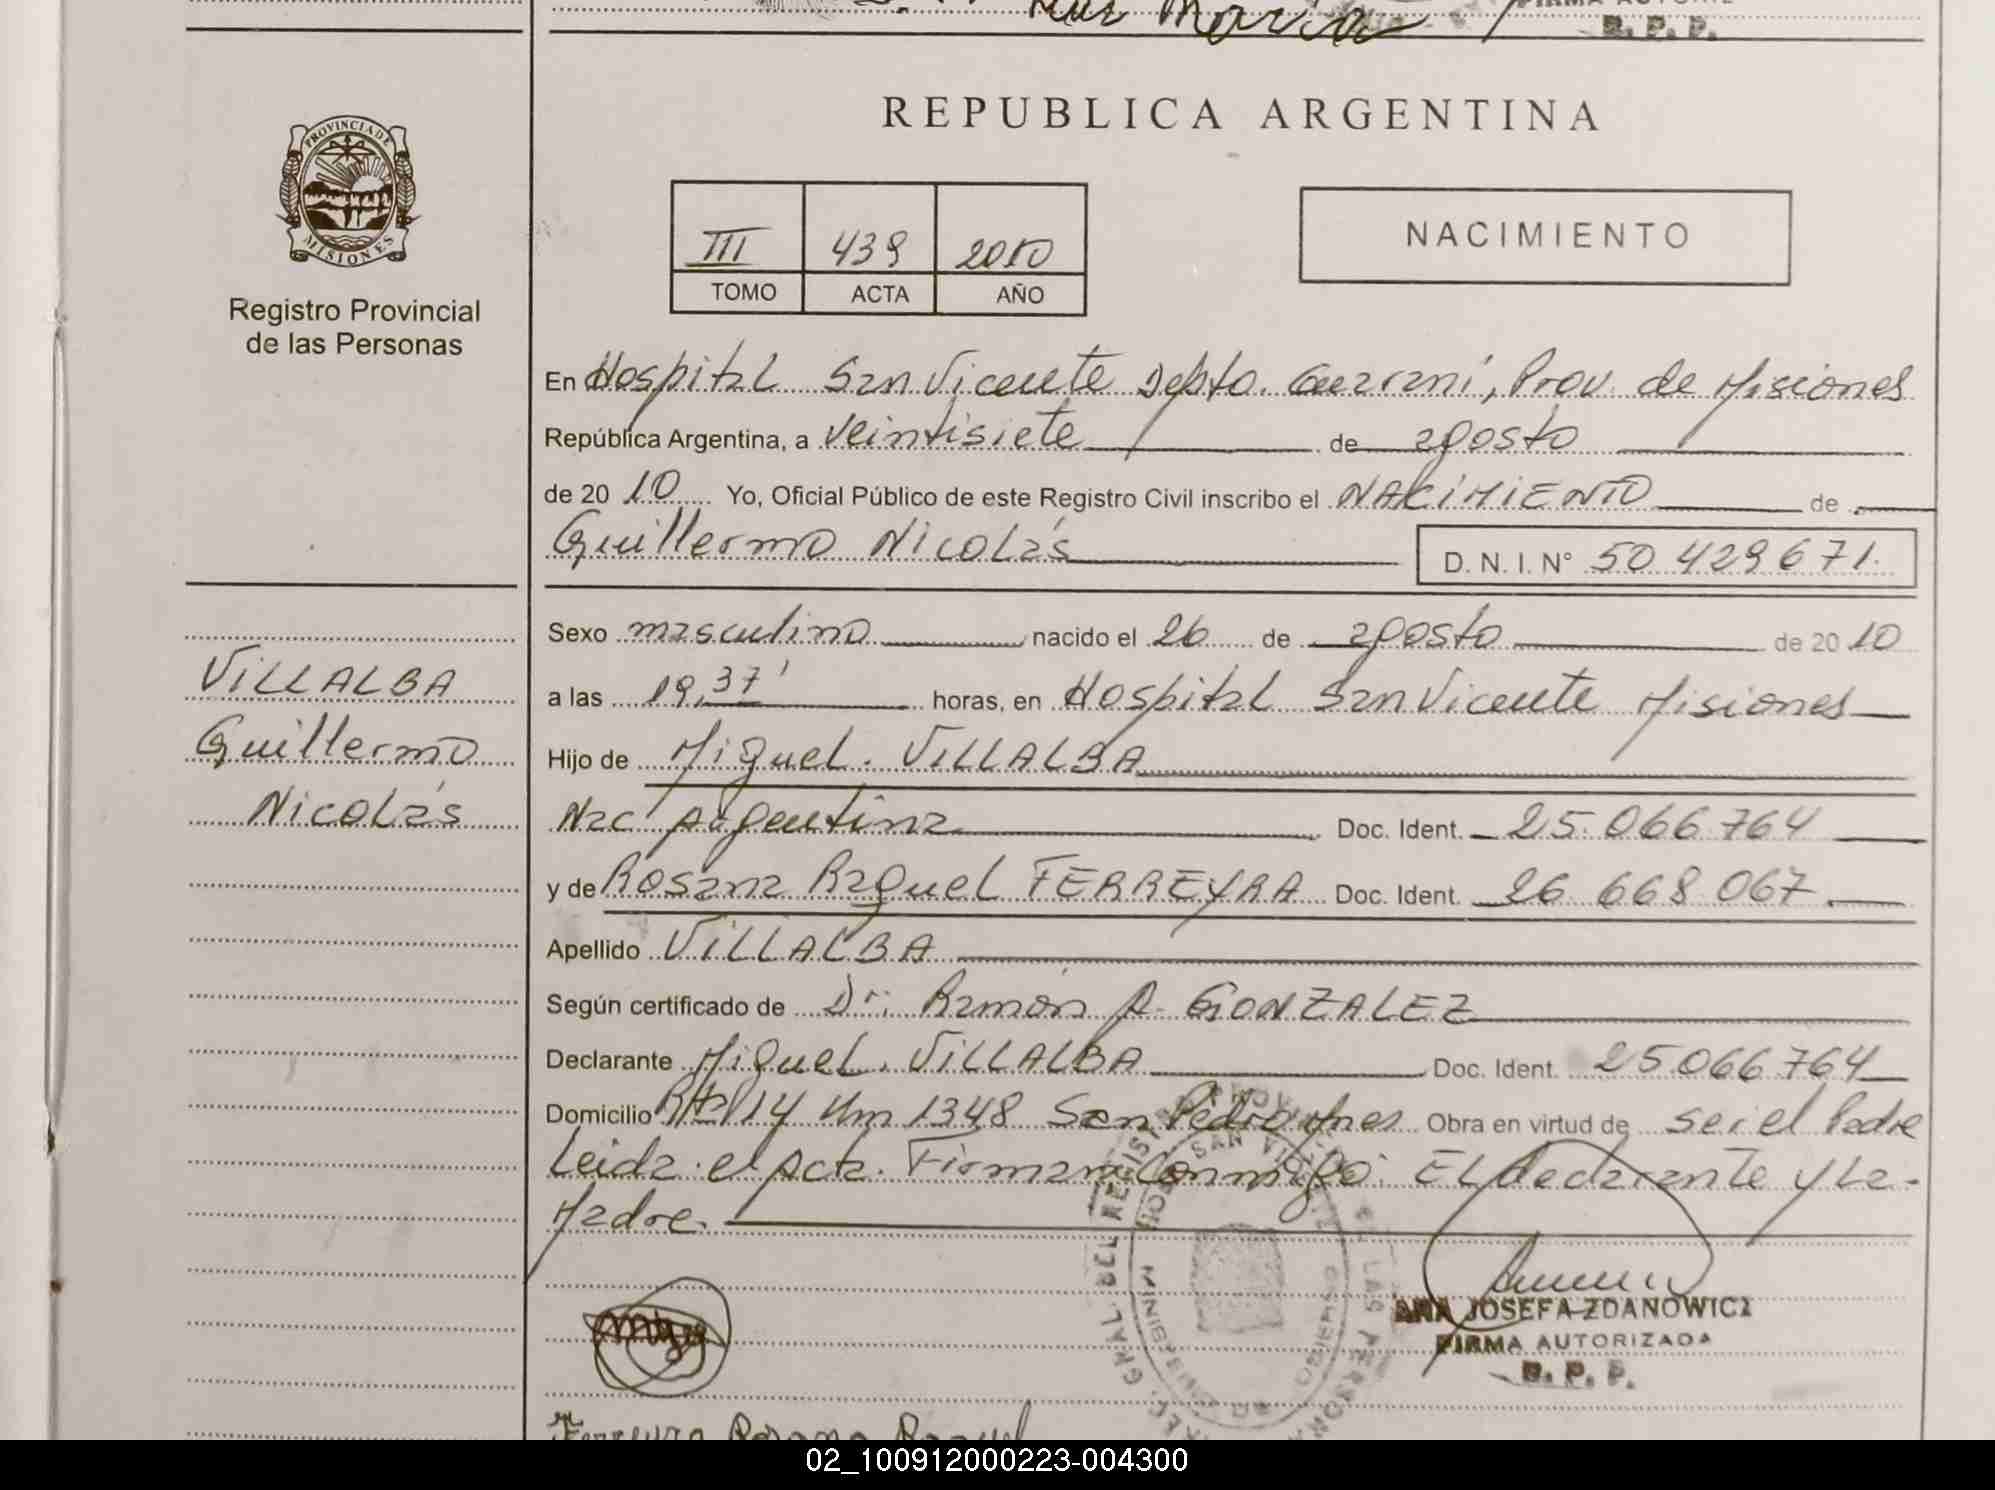 Mar Maria
FIRMA AUTORIZ
R. P. P.
PROVINCIA DE
MISIONES
Registro Provincial
de las Personas
REPUBLICA ARGENTINA
III 439 2010
TOMO ACTA AÑO
NACIMIENTO
En Hospital San Vicente Depto. Guaraní, Prov. de Misiones
República Argentina, a veintisiete de agosto
de 20 10 Yo, Oficial Público de este Registro Civil inscribo el NACIMIENTO de
Guillermo Nicolás D. N. I. N° 50 429 671.
Sexo masculino nacido el 26 de agosto de 20 10
a las 19,37' horas, en Hospital San Vicente Misiones
Hijo de Miguel. VILLALBA
Nac argentina Doc. Ident. 25.066 764
y de Rosana Raquel FERREYRA Doc. Ident. 26 668 067
Apellido VILLALBA
Según certificado de Dr. Ramón A. GONZALEZ
Declarante Miguel. VILLALBA Doc. Ident. 25 066 764
Domicilio Rta 14 Km 1348 San Pedro Mnes Obra en virtud de ser el Padre
Leida el acta. Firman Conmigo: El declarante y La-
Madre.
VILLALBA
Guillermo
Nicolás
ANA JOSEFA ZDANOWICZ
FIRMA AUTORIZADA
R. P. P.
Ferreyra Rosana Raquel
02_100912000223-004300